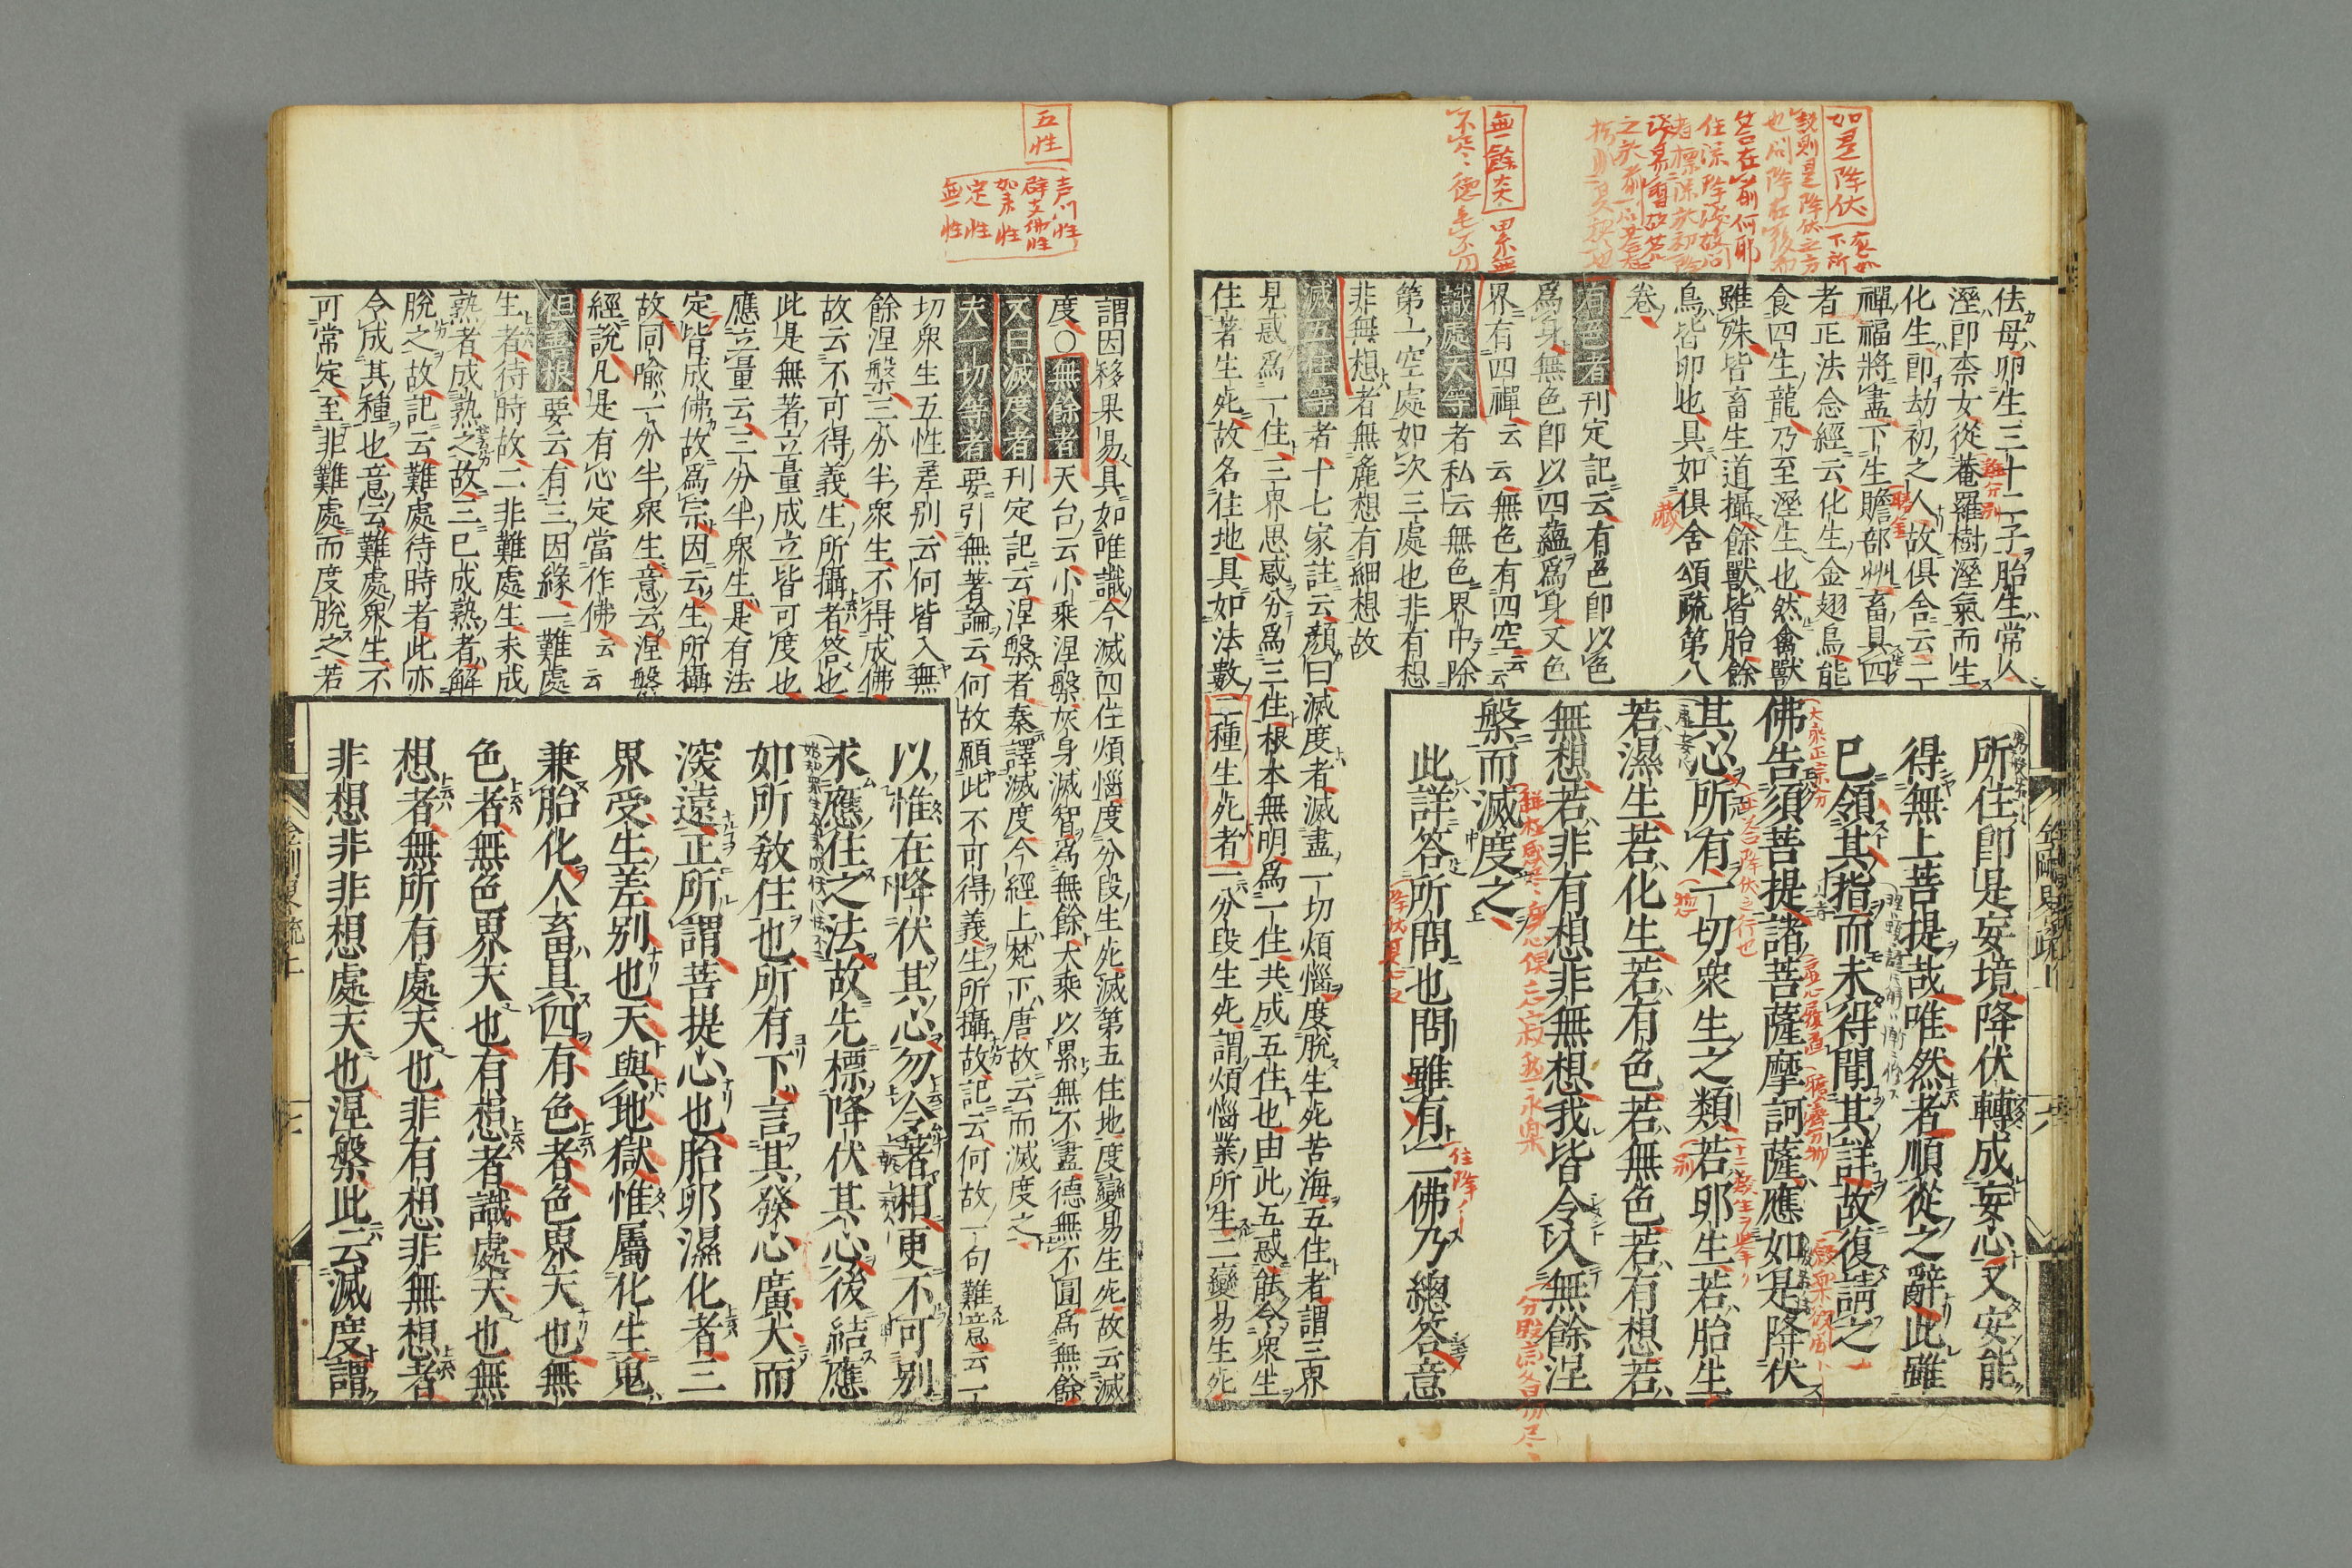 如是降伏
無餘
佉母卵生三十二子胎生常人
溼卽柰女從菴羅樹溼氣而生
化生卽劫初之人故俱舍云二
禪福將盡下生贍部州畜具四
者正法念經云化生金翅鳥能
食四生龍乃至溼生也然禽獸
雖殊皆畜生道攝餘獸皆胎餘
鳥皆卵也具如俱舍頌疏第八
卷
有色者刊定記云有色卽以色
爲身無色卽以四蘊爲身又色
界有四禪云云無色有四空云云
識處天等者私云無色界中除
第一空處如次三處也非有想
非無想者無麁想有細想故
滅五住等者十七家註云顏曰滅度者滅盡一切煩惱度脫生死苦海五住者謂三界
見惑爲一住三界思惑分爲三住根本無明爲一住共成五住也由此五惑能令衆生
住著生死故名住地具如法數三種生死者一分段生死謂煩惱業所生二變易生死
所住卽是妄境降伏轉成妄心又安能
得無上菩提哉唯然者順從之辭此雖
已領其指而未得聞其詳故復請之
佛告須菩提諸菩薩摩訶薩應如是降伏
其心所有一切衆生之類若卵生若胎生
若濕生若化生若有色若無色若有想若
無想若非有想非無想我皆令入無餘涅
槃而滅度之
此詳答所問也問雖有二佛乃總答意
五性
声聞性
辟支佛性
如来性
定性
無性
謂因移果易具如唯識今滅四住煩惱度分段生死滅第五住地度變易生死故云滅
度〇無餘者天台云小乘涅槃灰身滅智爲無餘大乘以累無不盡德無不圓爲無餘
又曰滅度者刊定記云涅槃者秦譯滅度今經上梵下唐故云而滅度之
夫一切等者要引無著論云何故願此不可得義生所攝故記云何故一句難意云一
切衆生五性差別云何皆入無
餘涅槃三分半衆生不得成佛
故云不可得義生所攝者答也
此是無著立量成立皆可度也
應立量云三分半衆生是有法
定皆成佛故爲宗因云生所攝
故同喩一分半衆生意云涅槃
經說凡是有心定當作佛云云
但善根要云有三因緣一難處
生者待時故二非難處生未成
熟者成熟之故三已成熟者解
脫之故記云難處待時者此亦
令成其種也意云難處衆生不
可常定至非難處而度脫之若
以惟在降伏其心勿令著相更不可別
求應住之法故先標降伏其心後結應
如所教住也所有下言其發心廣大而
深遠正所謂菩提心也胎卵濕化者三
界受生差別也天與地獄惟屬化生鬼
兼胎化人畜具四有色者色界天也無
色者無色界天也有想者識處天也無
想者無所有處天也非有想非無想者
非想非非想處天也涅槃此云滅度謂